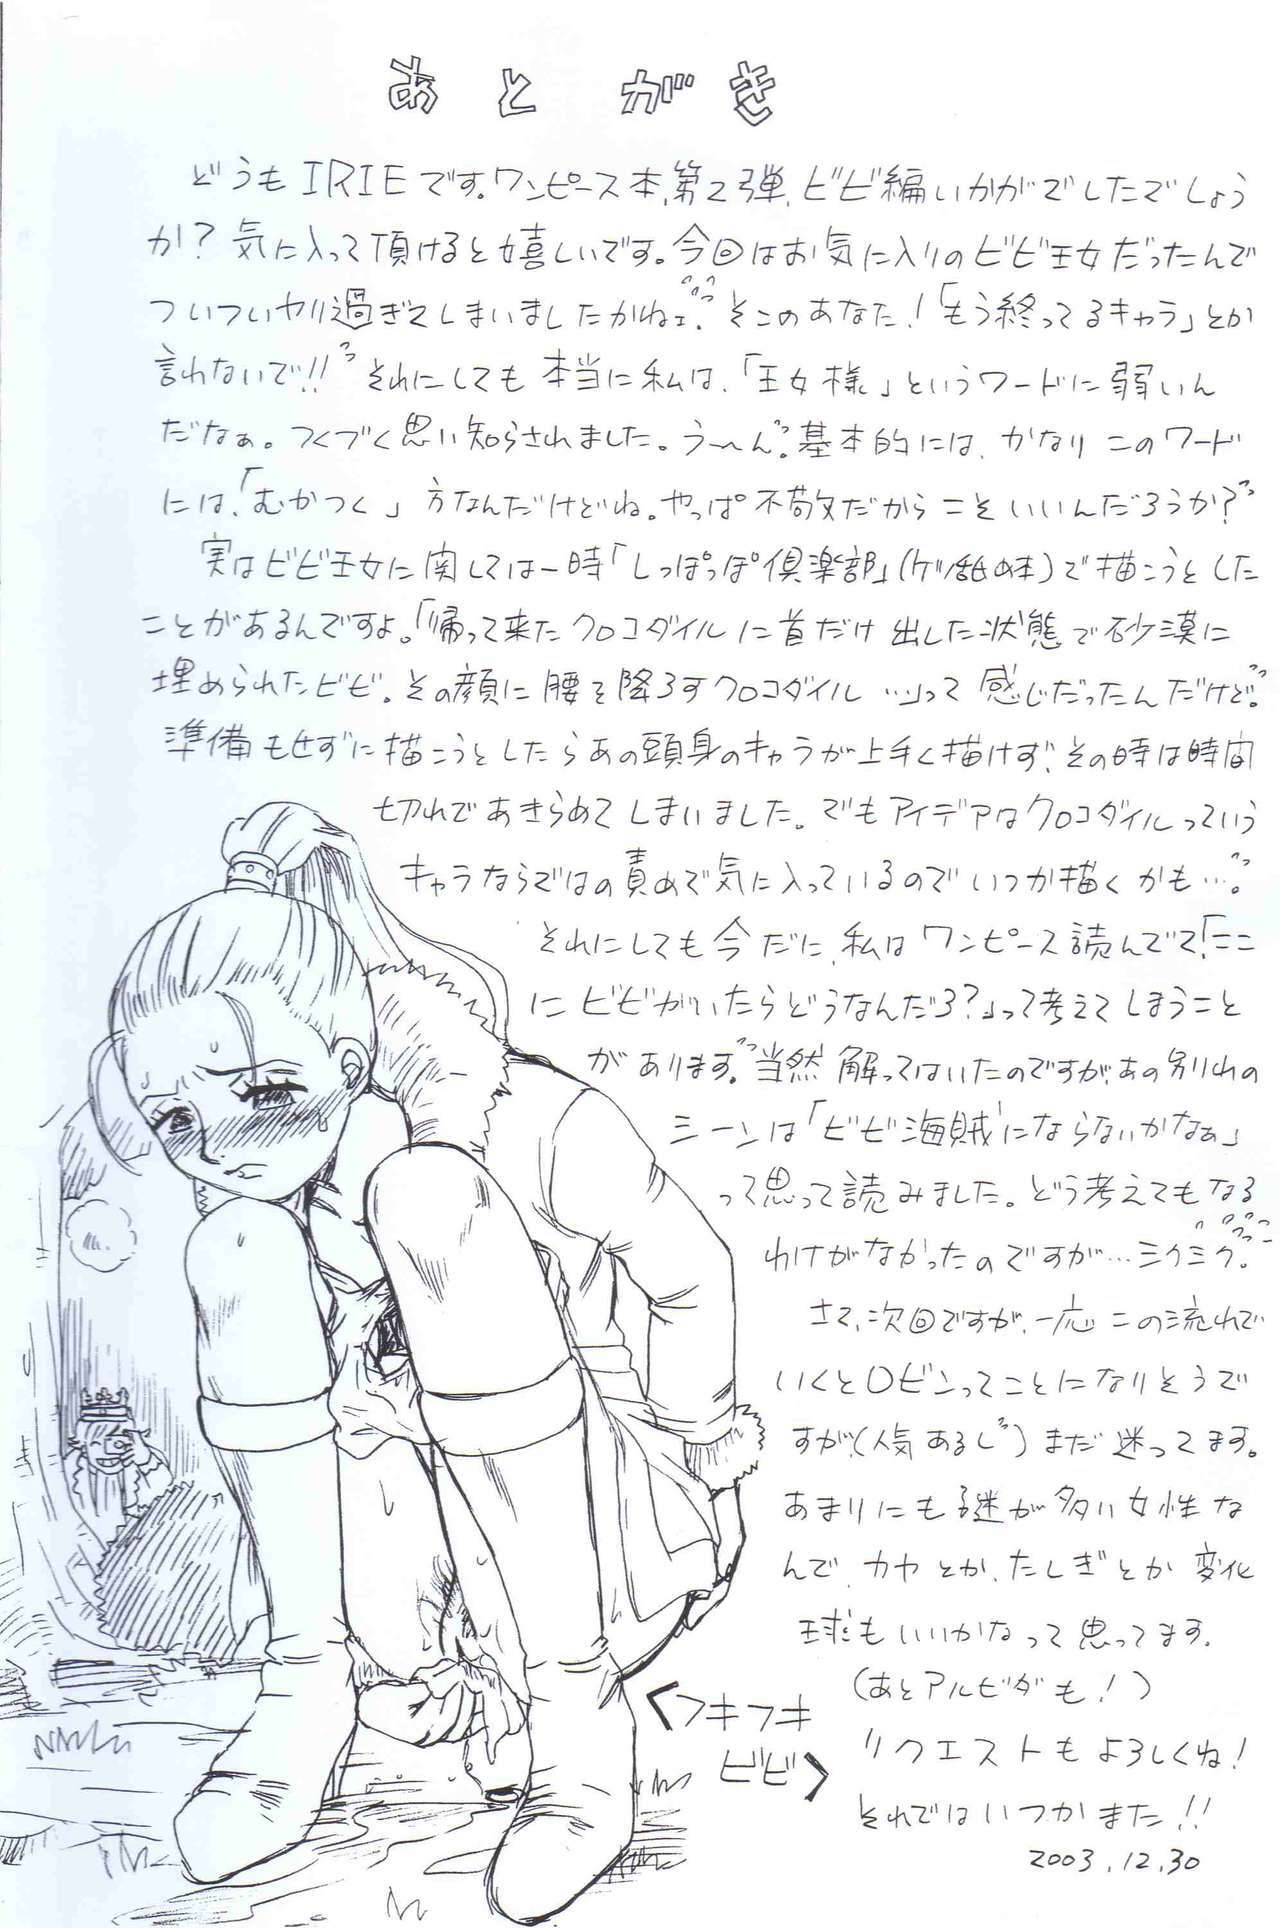 あとがき
どうもIRIEです。ワンピース本、第2弾、ビビ編いかがでしたでしょう
か?気に入って頂けると嬉しいです。今回はお気に入りのビビ王女だったんで
ついついヤリ過ぎてしまいましたかねェ。そこのあなた!「もう終ってるキャラ」とか
言わないで!!それにしても本当に私は、「王女様」というワードに弱いん
だなぁ。つくづく思い知らされました。う〜ん。基本的には、かなりこのワード
には、「むかつく」方なんだけどね。やっぱ不敬だからこそいいんだろうか?
実はビビ王女に関しては一時「しっぽっぽ倶楽部」()で描こうとした
ことがあるんですよ。「帰って来たクロコダイルに首だけ出した状態で砂漠に
埋められたビビ。その顔に腰を降ろすクロコダイル…」って感じだったんだけど。
準備もせずに描こうとしたらあの頭身のキャラが上手く描けず、その時は時間
切れであきらめてしまいました。でもアイデアはクロコダイルっていう
キャラならではの責めで気に入っているのでいつか描くかも…。
それにしても今だに、私はワンピース読んでて、「ここ
にビビがいたらどうなんだろ?」って考えてしまうこと
があります。当然解ってはいたのですが、あの別れの
シーンは「ビビ海賊にならないかなぁ」
って思って読みました。どう考えてもなる
わけがなかったのですが…シクシク。
さて、次回ですが、一応この流れで
いくとロビンってことになりそうで
すが、(人気あるし)まだ迷ってます。
あまりにも謎が多い女性な
んで、カヤとか、たしぎとか変化
球もいいかなって思ってます。
(あとアルビダも!)
リクエストもよろしくね!
それではいつかまた!!
2003.12.30
<フキフキ
ビビ>